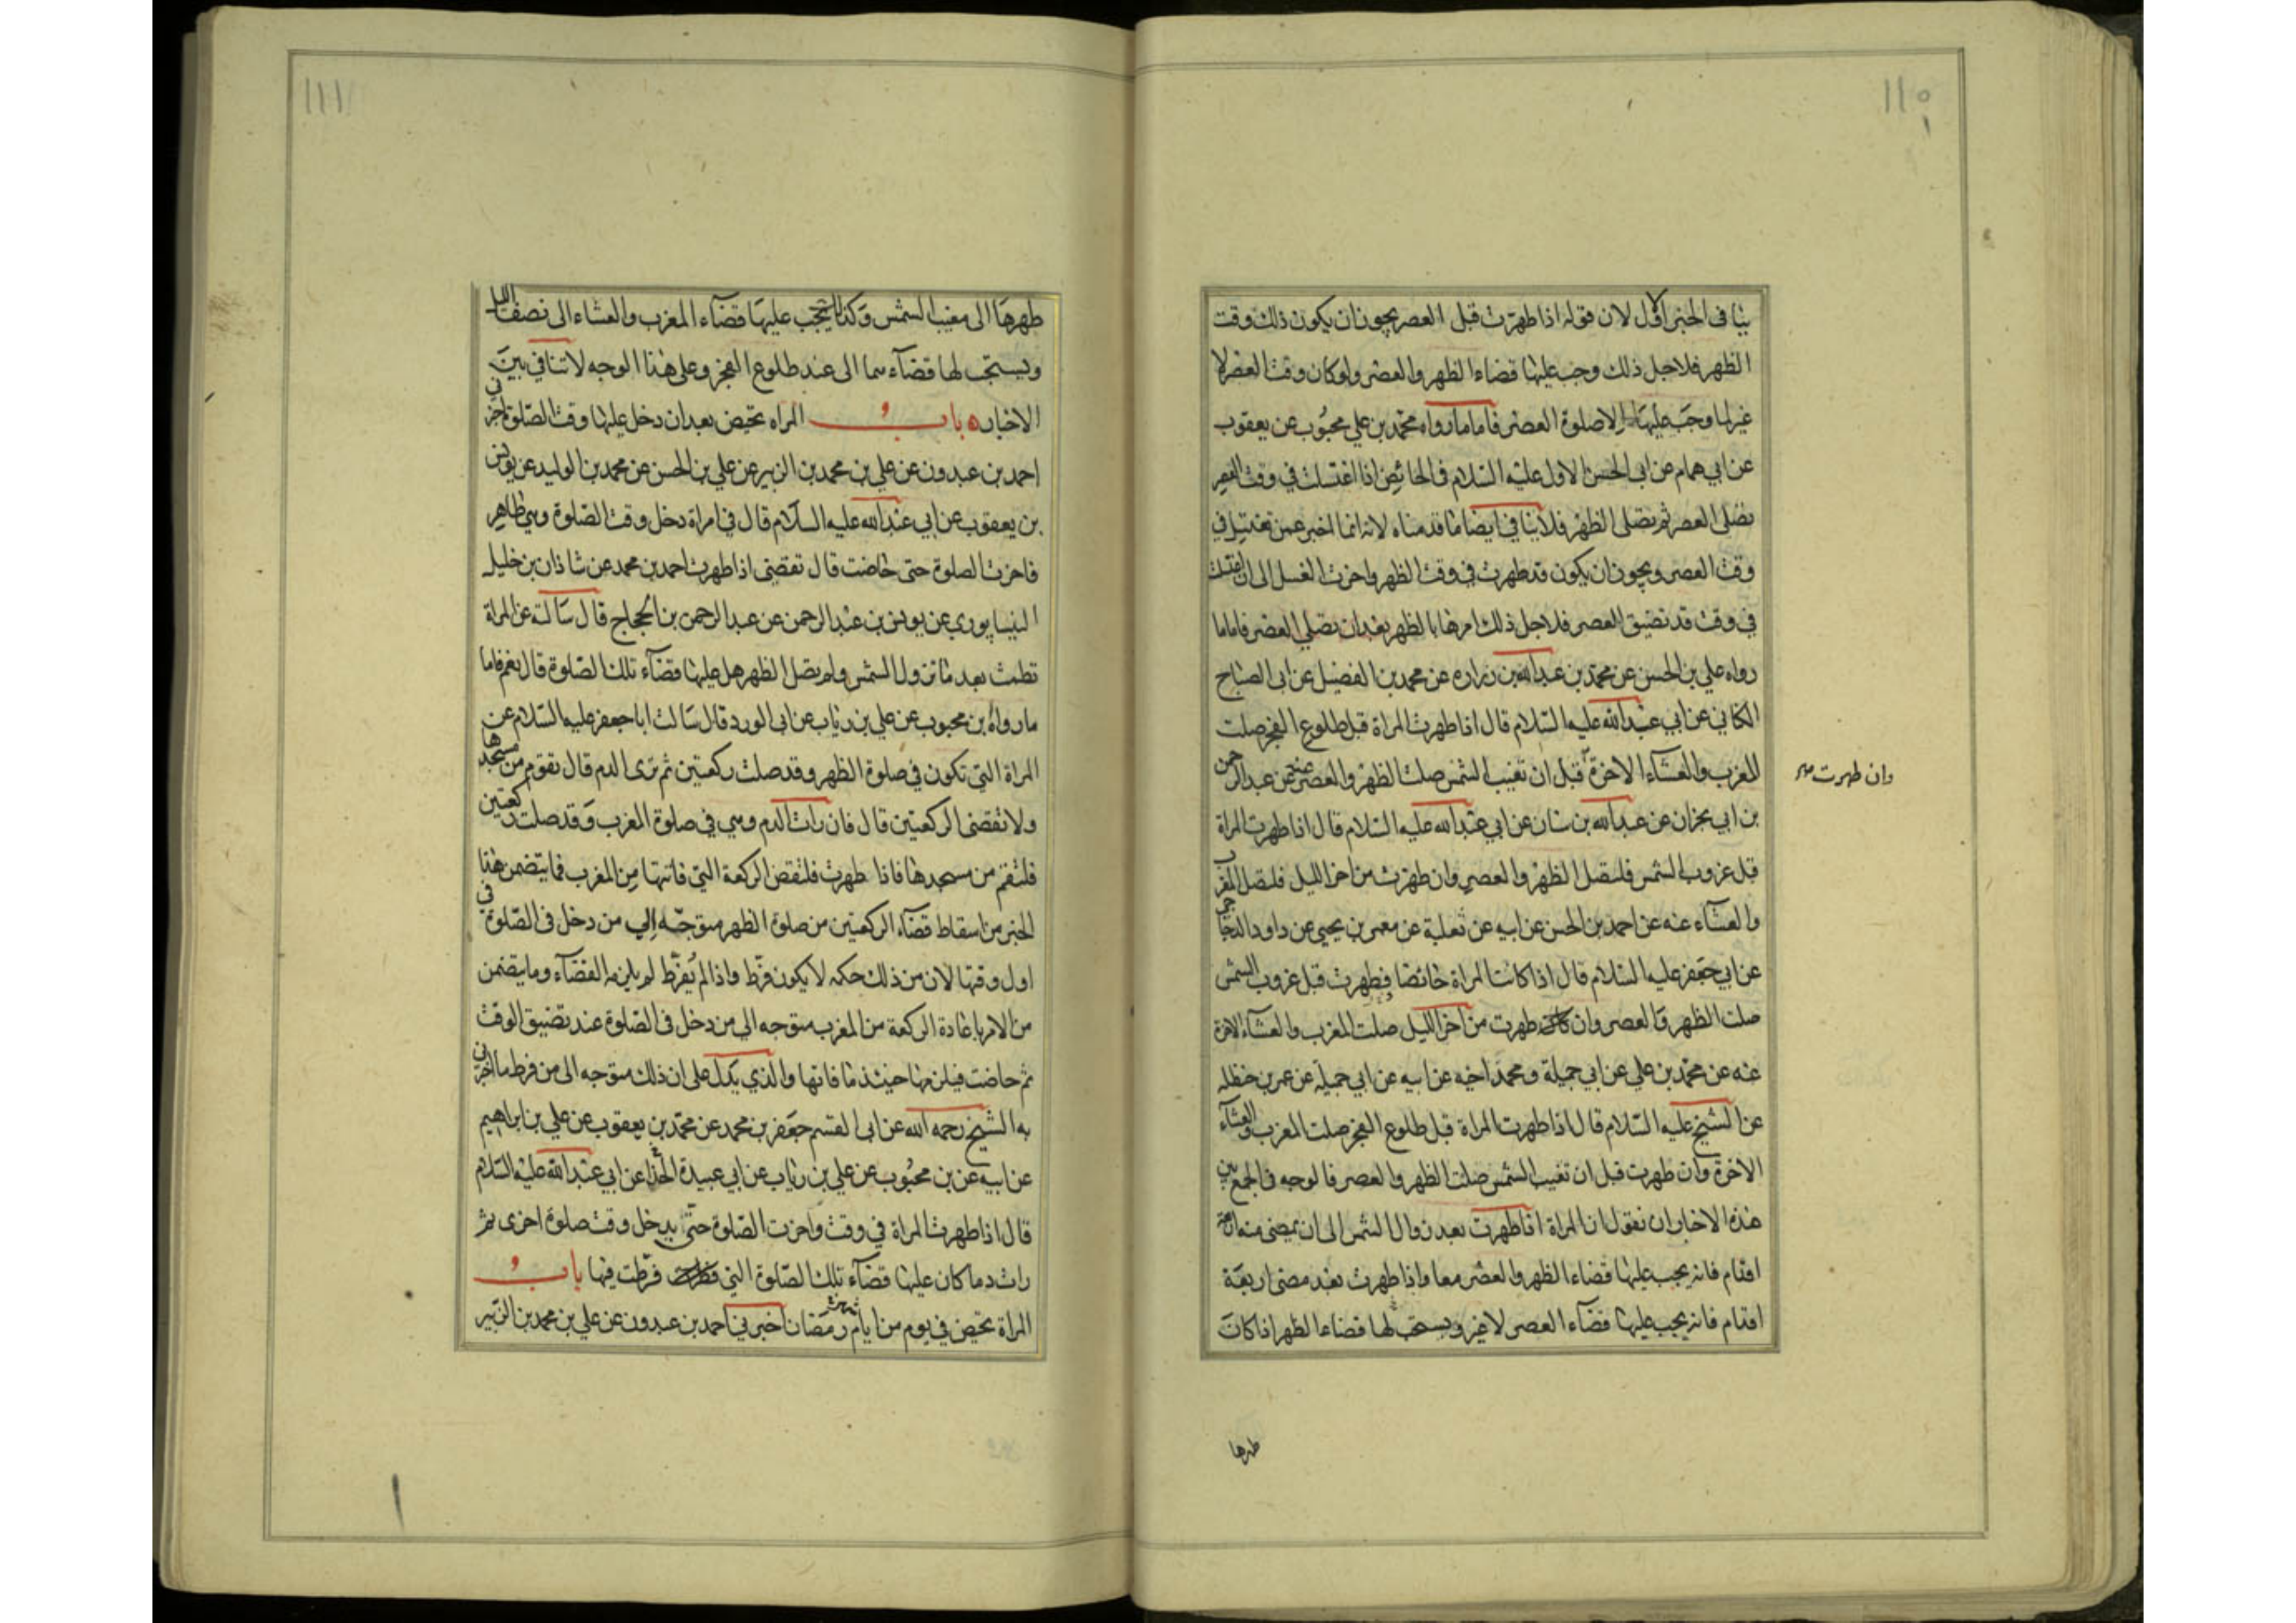 ١١٥
١
ينافى الخبر الاول لان قوله اذا طهرت قبل العصر يجوز ان يكون ذلك وقت
الظهر فلاجل ذلك وجب عليها قضاء الظهر والعصر ولو كان وقت العصر لا
غير لما وجب عليها الا صلوة العصر فاما ما رواه محمد بن علي محبوب عن يعقوب
عن ابي همام عن ابى الحسن الاول عليه السلام فى الحائض اذا اغتسلت في وقت العصر
تصلى العصر ثم تصلى الظهر فلا ينافي ايضا ما قدمناه لانه انما اخبر عمن تغتسل في
وقت العصر ويجوز ان يكون قد طهرت فى وقت الظهر واخرت الغسل الى ان اغتسلت
في وقت قد تضيق العصر فلاجل ذلك امرها بالظهر بعد ان تصلي العصر فاما ما
رواه علي بن الحسن عن محمد بن عبدالله بن زراره عن محمد بن الفضيل عن ابى الصباح
الكناني عن ابي عبدالله عليه السلام قال اذا طهرت المراة قبل طلوع الفجر صلت
المغرب والعشاء الاخرة قبل ان تغيب الشمس صلت الظهر والعصر عنه عن عبد الرحمن
وان طهرت
بن ابي نجران عن عبدالله بن سنان عن ابي عبدالله عليه السلام قال اذا طهرت المراة
قبل غروب الشمس فلتصل الظهر والعصر وان طهرت من اخر الليل فلتصل المغرب
والعشاء عنه عن احمد بن الحسن عن ابيه عن ثعلبة عن معمر بن يحيى عن داود الدجاجى
عن ابي جعفر عليه السلام قال اذا كانت المراة حائضا فطهرت قبل غروب الشمس
صلت الظهر والعصر وان كانت طهرت من اخر الليل صلت المغرب والعشاء الاخرة
عنه عن محمد بن علي عن ابي جميلة ومحمد اخيه عن ابيه عن ابي جميلة عن عمر بن حنظله
عن الشيخ عليه السلام قال اذا طهرت المراة قبل طلوع الفجر صلت المغرب والعشاء
الاخرة وان طهرت قبل ان تغيب الشمس صلت الظهر والعصر فالوجه فى الجمع بين
هذه الاخبار ان نقول ان المراة اذا طهرت بعد زوال الشمس الى ان يمضى منه اربعة
اقدام فانه يجب عليها قضاء الظهر والعصر معا واذا طهرت بعد مضى اربعة
اقدام فانه يجب عليها قضاء العصر لا غير ويستحب لها قضاء الظهر اذا كان
طهرها
١١١
طهرها الى مغيب الشمس وكذلك يجب عليها قضاء المغرب والعشاء الى نصف الليل
ويستحب لها قضاءهما الى عند طلوع الفجر وعلى هذا الوجه لا تنافي بين
الاخبار ه باب المراه تحيض بعد ان دخل عليها وقت الصلوة اخبرني
احمد بن عبدون عن علي بن محمد بن الزبير عن علي بن الحسن عن محمد بن الوليد عن يونس
بن يعقوب عن ابي عبدالله عليه السلام قال في امراة دخل وقت الصلوة وهي طاهر
فاخرت الصلوة حتى حاضت قال تقضى اذا طهرت احمد بن محمد عن شاذان بن خليل
النيسابوري عن يونس بن عبد الرحمن عن عبد الرحمن بن الحجاج قال سالته عن المراة
تطمث بعد ما تزول الشمس ولم تصل الظهر هل عليها قضاء تلك الصلوة قال نعم فاما
ما رواه بن محبوب عن علي بن رئاب عن ابى الورد قال سالت ابا جعفر عليه السلام عن
المراة التي تكون في صلوة الظهر وقد صلت ركعتين ثم ترى الدم قال تقوم من مسجدها
ولا تقضى الركعتين قال فان رات الدم وهي في صلوة المغرب وقد صلت ركعتين
فلتقم من مسجدها فاذا طهرت فلتقض الركعة التي فاتتها من المغرب فما يتضمن هذا
الخبر من اسقاط قضاء الركعتين من صلوة الظهر متوجه الي من دخل فى الصلوة في
اول وقتها لان من ذلك حكمه لا يكون فرط واذا لم يفرط لم يلزمه القضاء وما يتضمن
من الامر باعادة الركعة من المغرب متوجه الى من دخل فى الصلوة عند تضيق الوقت
ثم حاضت فيلزمها حينئذ ما فاتها والذي يدل على ان ذلك متوجه الى من فرط ما اخبرني
به الشيخ رحمه الله عن ابى القسم جعفر بن محمد عن محمد بن يعقوب عن علي بن ابراهيم
عن ابيه عن بن محبوب عن علي بن رئاب عن ابي عبيدة الحذا عن ابي عبدالله عليه السلام
قال اذا طهرت المراة في وقت واخرت الصلوة حتى يدخل وقت صلوة اخرى ثم
رات دما كان عليها قضاء تلك الصلوة التي فرطت فيها باب
المراة تحيض في يوم من ايام شهر رمضان اخبرني احمد بن عبدون عن علي بن محمد بن الزبير